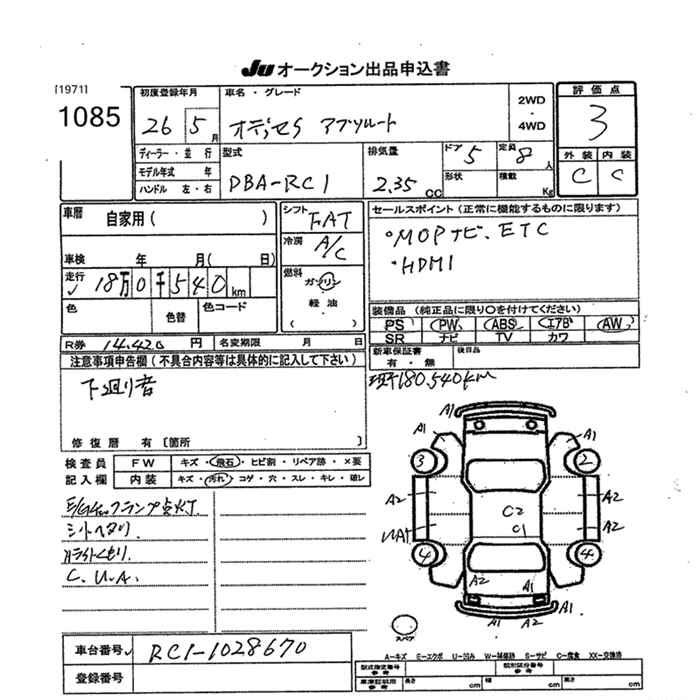 JU オークション出品申込書
[1971]
1085
初度登録年月
26 5月
車名・グレード
オデッセS アブソルート
2WD
・
4WD
評価点
3
外装 内装
C C
ディーラー・並行
モデル年式 年
ハンドル 左・右
型式
DBA-RC1
排気量
2.35 CC
ドア
5
定員
8人
形状
積載
Kg
車歴
自家用( )
車検 年 月( 日)
走行 18万0千540km
色
色替
色コード
R券 14.420 円
名変期限 月 日
シフト
FAT
冷房
A/C
燃料
ガソリン
軽油
・( )
セールスポイント(正常に機能するものに限ります)
°MOPナビ、ETC
°HDMI
装備品(純正品に限り〇を付けてください)
PS PW ABS エアB AW
SR ナビ TV カワ
新車保証書
有・無
後日品
注意事項申告欄(不具合内容等は具体的に記入して下さい)
下廻り音
修復歴 有〔箇所 〕
現状180.540km
検査員
記入欄
FW キズ・飛石・ヒビ割・リペア跡・×要
内装 キズ・汚れ・コゲ・穴・スレ・キレ・破レ
E/Gチェックランプ点灯
シートヘタリ
ヘッドライトくもり
C.U.A.
A1 A1
3 2
A1 A1
A2 A2
C2
C1
UA1 A2
4 4
A2 A1
A1 A2 A1
スペア
A−キズ E−エクボ U−凹み W−補修跡 S−サビ C−腐食 XX−交換済
車台番号 RC1-1028670
登録番号
型式指定番号
参考
類別区分番号
参考
車庫証明用
参考
長さ cm
幅 cm
高さ cm